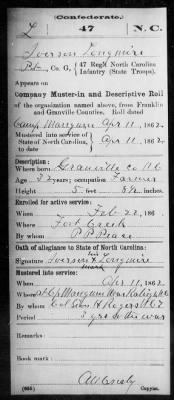 (Confederate.)
L 47 N. C.
Iverson Longmire
Pvt. Co. G, 47 Reg't North Carolina
Infantry (State Troops).
Appears on
Company Muster-in and Descriptive Roll
of the organization named above, from Franklin
and Granville Counties. Roll dated
Camp Mangum Apr 11, 1862.
Mustered into service of
State of North Carolina, to
date Apr 11, 1862.
Description:
Where born Granville Co N.C.
Age years; occupation Farmer
Height 5 feet 8½ inches.
Enrolled for active service:
When Feb 22, 186
Where Fort Creek
By whom P. P. Peace
Oath of allegiance to State of North Carolina:
Signature Iverson his x mark Longmire
Mustered into service:
When Apr 11, 1862
Where Cp. Mangum near Raleigh N.C.
By whom Col Sion H Rogers
Period 3 yrs or the war
Remarks:
Book mark:
(655) Copyist.